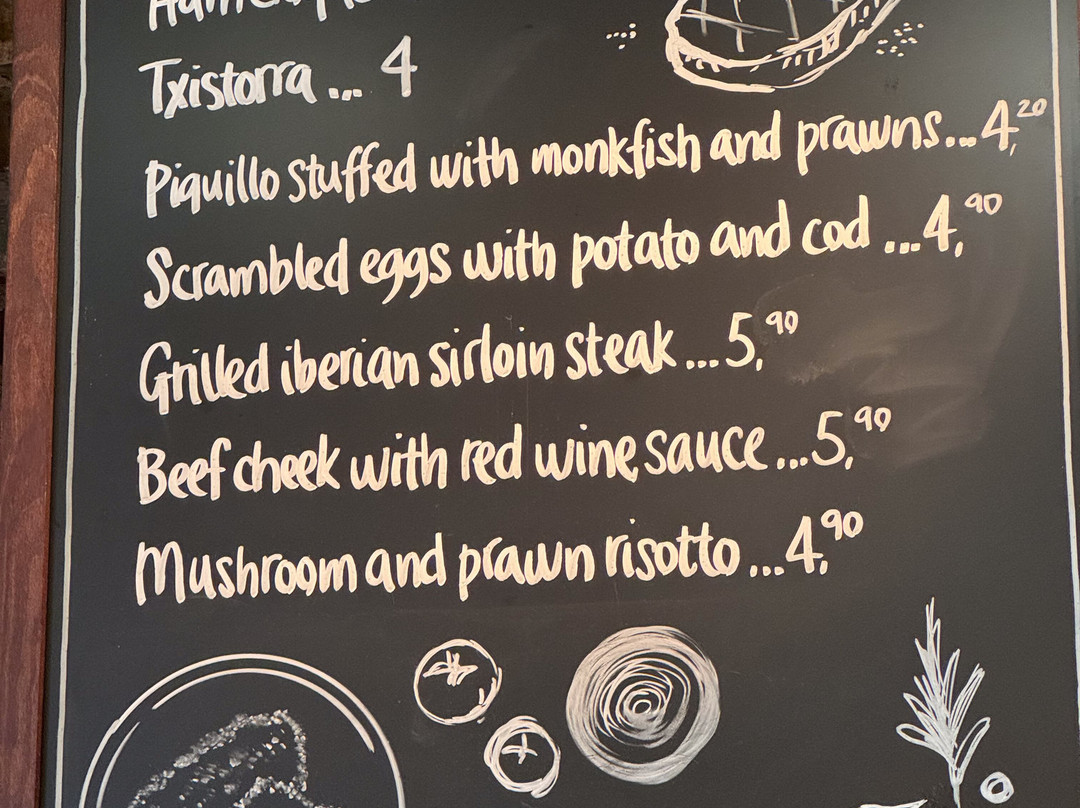 Txistorra ... 4
Piquillo stuffed with monkfish and prawns...4,20
Scrambled eggs with potato and cod ...4,90
Grilled iberian sirloin steak ...5,90
Beef cheek with red wine sauce ...5,90
Mushroom and prawn risotto ...4,90